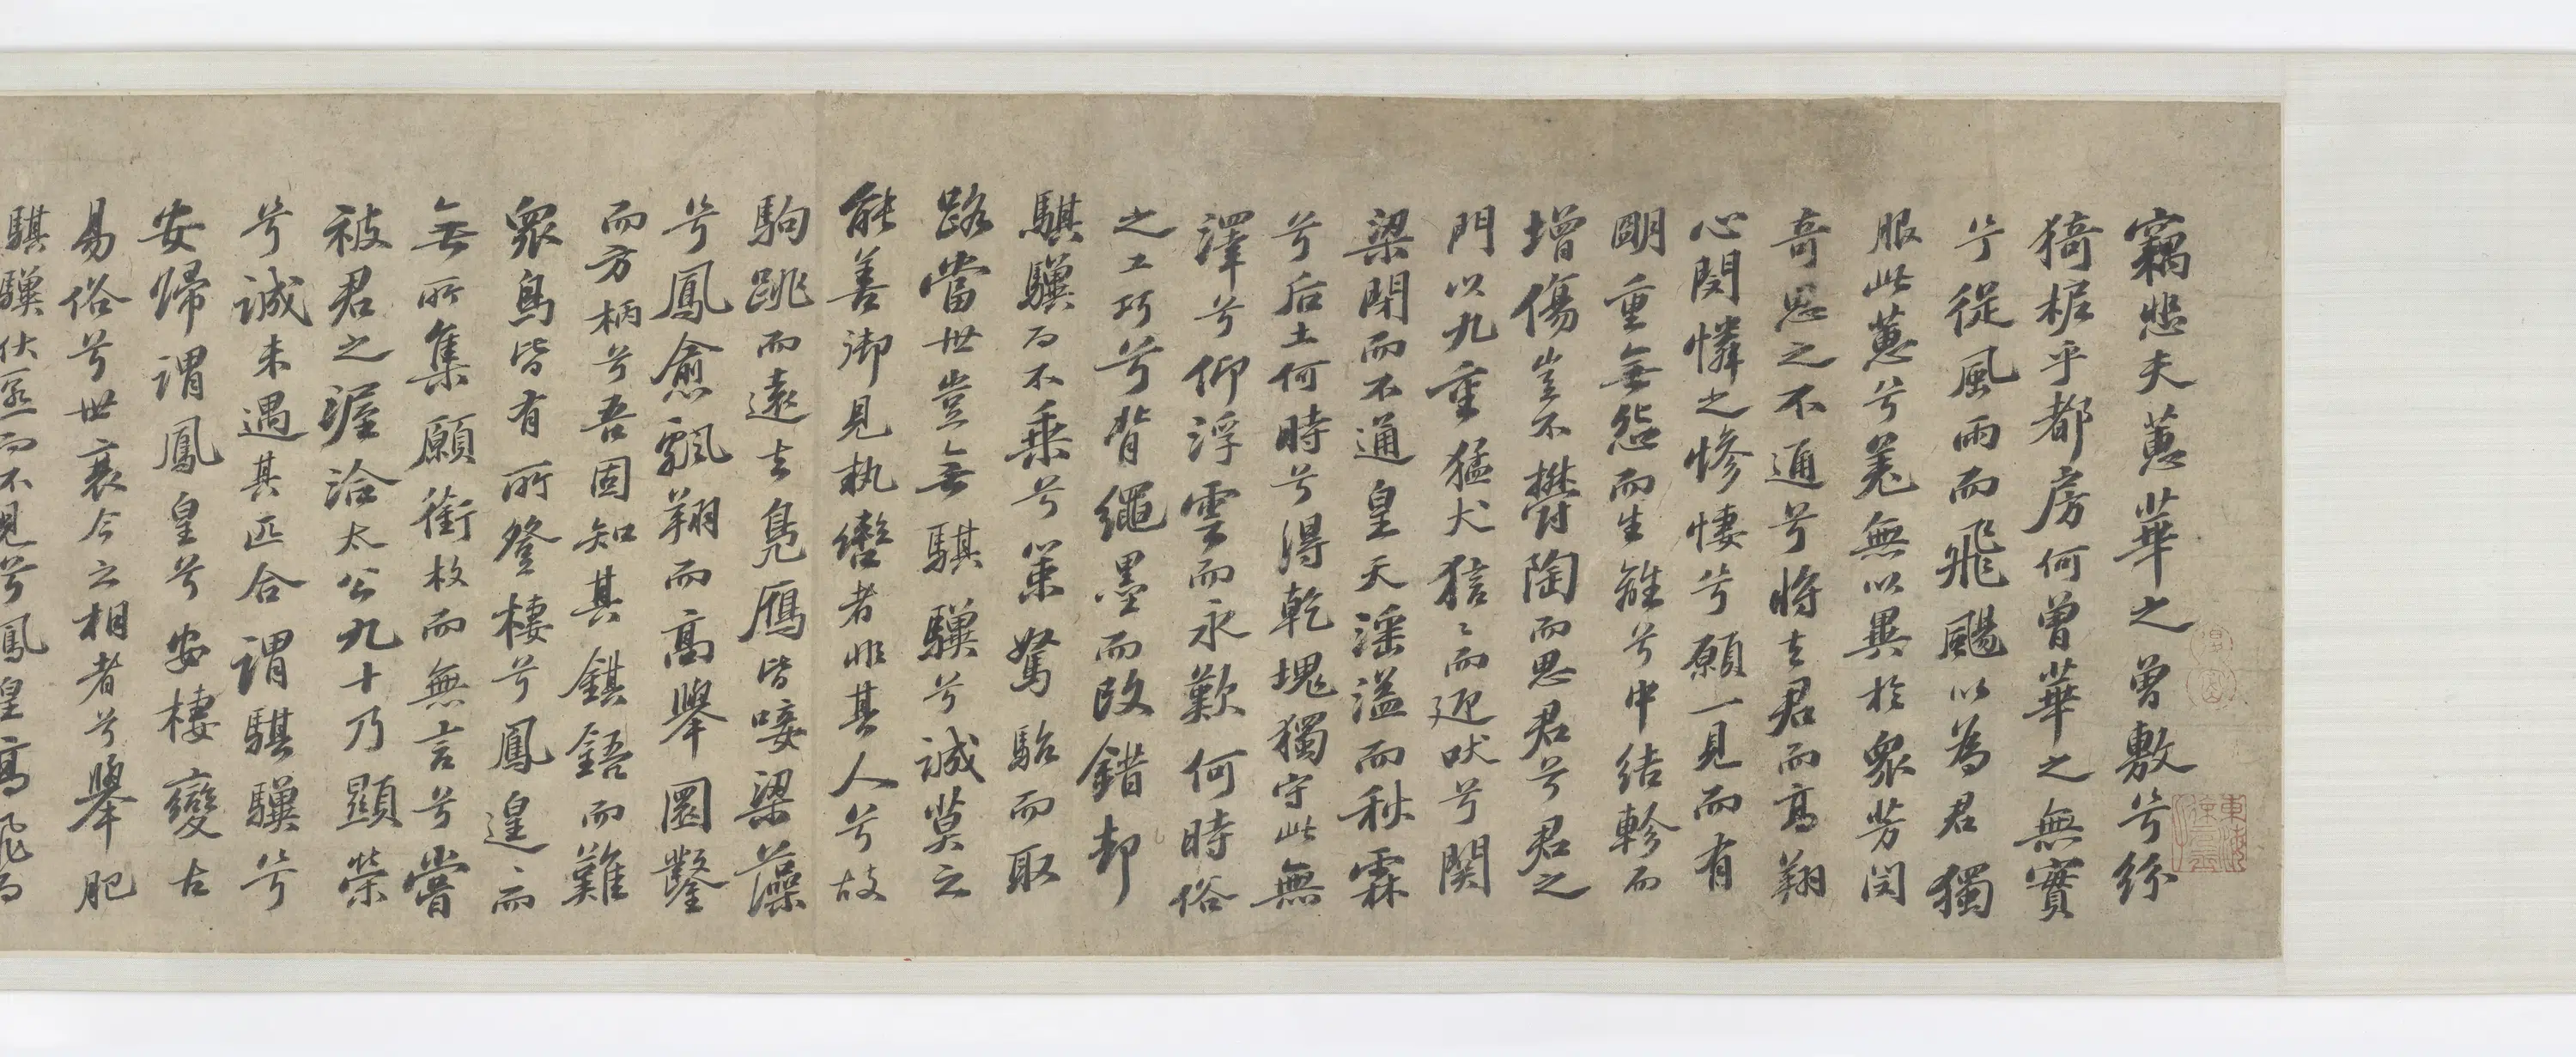 竊悲夫蕙華之曾敷兮紛
猗柅乎都房何曾華之無實
兮從風雨而飛颺以為君獨
服此蕙兮羌無以異於衆芳閔
奇思之不通兮將去君而高翔
心閔憐之慘悽兮願一見而有
明重無怨而生離兮中結軫而
增傷豈不欝陶而思君兮君之
門以九重猛犬狺〻而迎吠兮關
梁閉而不通皇天淫溢而秋霖
兮后土何時兮得乾塊獨守此無
澤兮仰浮雲而永歎何時俗
之工巧兮背繩墨而改錯却
騏驥而不乗兮策駑駘而取
路當世豈無騏驥兮誠莫之
能善御見執轡者非其人兮故
駒跳而遠去鳧鴈皆唼梁藻
兮鳳愈飄翔而高舉圜鑿
而方枘兮吾固知其鉏鋙而難
衆鳥皆有所登棲兮鳳遑〻而
無所集願銜枚而無言兮嘗
被君之渥洽太公九十乃顯榮
兮誠未遇其匹合謂騏驥兮
安歸謂鳳皇兮安棲變古
易俗兮世衰今之相者兮舉肥
騏驥伏匿而不見兮鳳皇高飛而
東海